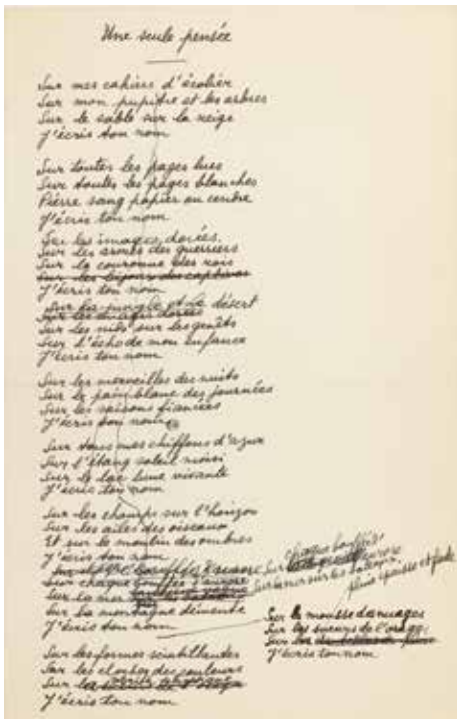 Une seule pensée
Sur mes cahiers d'écolier
Sur mon pupitre et les arbres
Sur le sable sur la neige
J'écris ton nom
Sur toutes les pages lues
Sur toutes les pages blanches
Pierre sang papier ou cendre
J'écris ton nom
Sur les images dorées
Sur les armes des guerriers
Sur la couronne des rois
Sur les bijoux des
J'écris ton nom
Sur la jungle et le désert
Sur les images dorées
Sur les nids sur les genêts
Sur l'écho de mon enfance
J'écris ton nom
Sur les merveilles des nuits
Sur le pain blanc des journées
Sur les saisons fiancées
J'écris ton nom
Sur tous mes chiffons d'azur
Sur l'étang soleil moisi
Sur le lac lune vivante
J'écris ton nom
Sur les champs sur l'horizon
Sur les ailes des oiseaux
Et sur le moulin des ombres
J'écris ton nom
bouffée d'aurore
Sur chaque bouffée d'aurore
Sur la mer
Sur la montagne démente
J'écris ton nom
Sur chaque bouffée
aurore
Sur la mer sur les bateaux
pluie épaisse et fade
Sur la mousse des nuages
Sur les sueurs de l'orage
Sur
J'écris ton nom
Sur les formes scintillantes
Sur les cloches des couleurs
Sur
J'écris ton nom